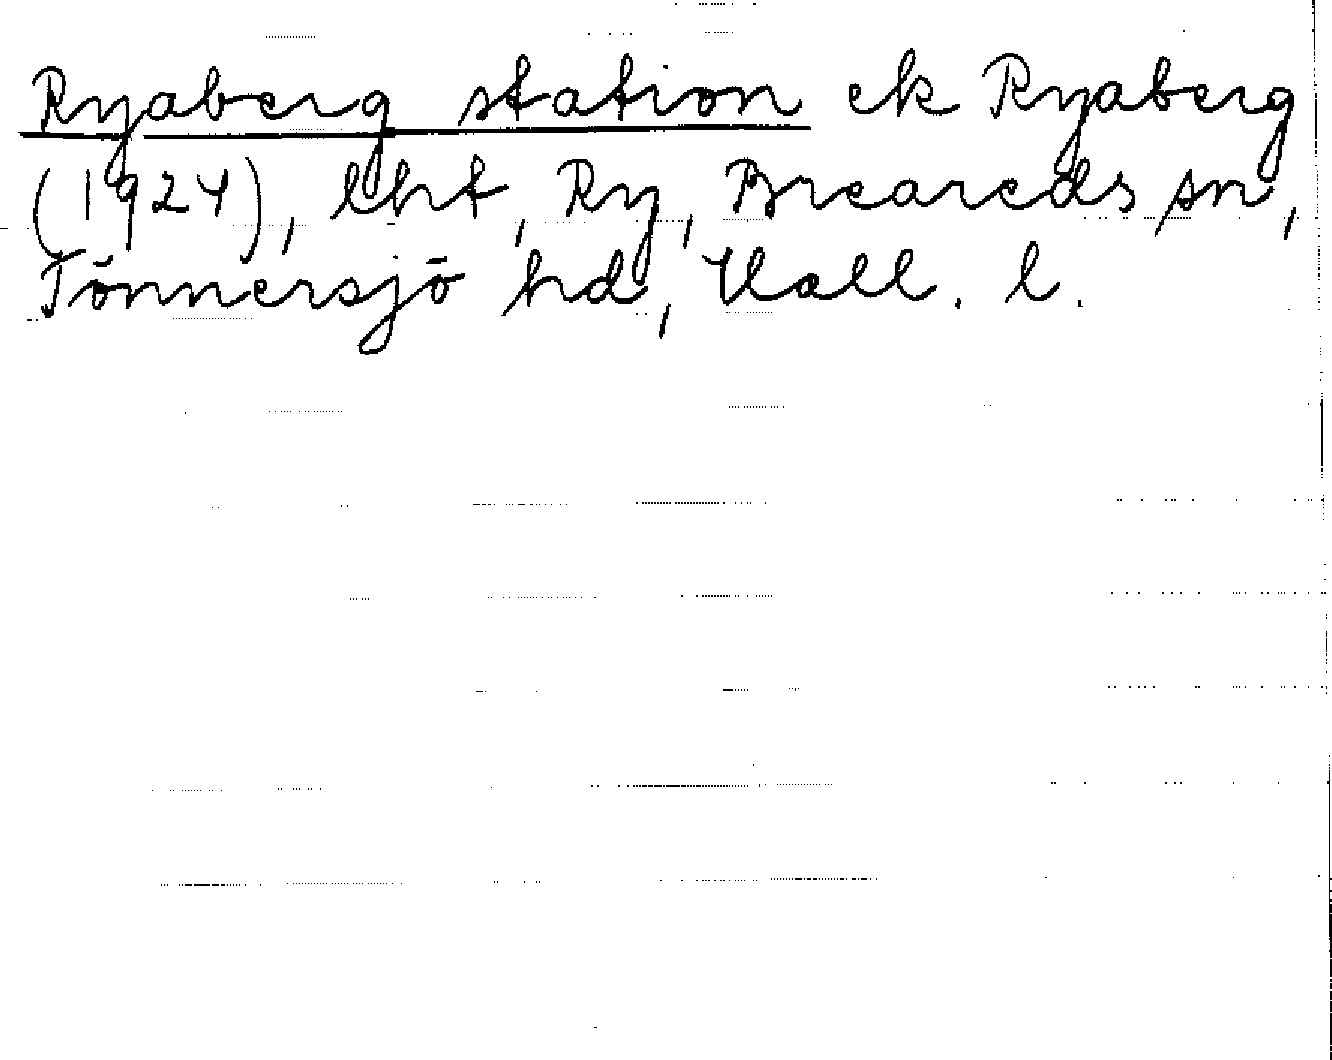 Ryaberg station ek Ryaberg
(1924), lht, Ry, Breareds sn,
Tönnersjö hd, Hall. l.